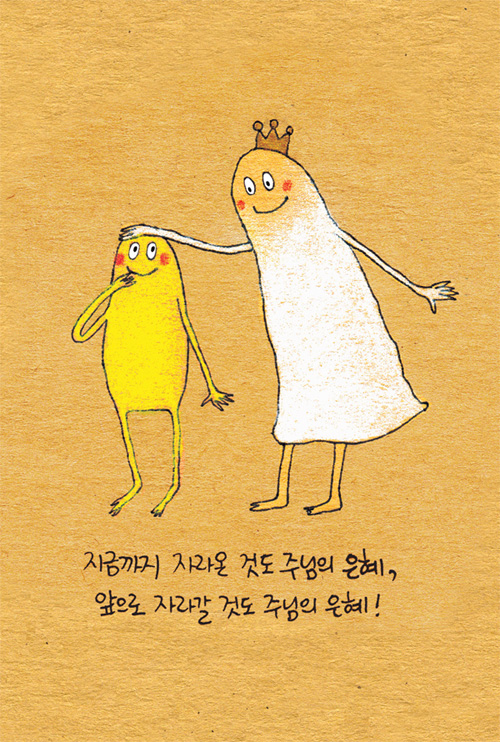 지금까지 자라온 것도 주님의 은혜,
앞으로 자라갈 것도 주님의 은혜!